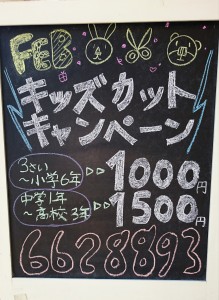 FEB
キッズカット
キャンペーン
3さい
～小学6年 ▷▷ 1000円
中学1年
～高校3年 ▷▷ 1500円
6628893